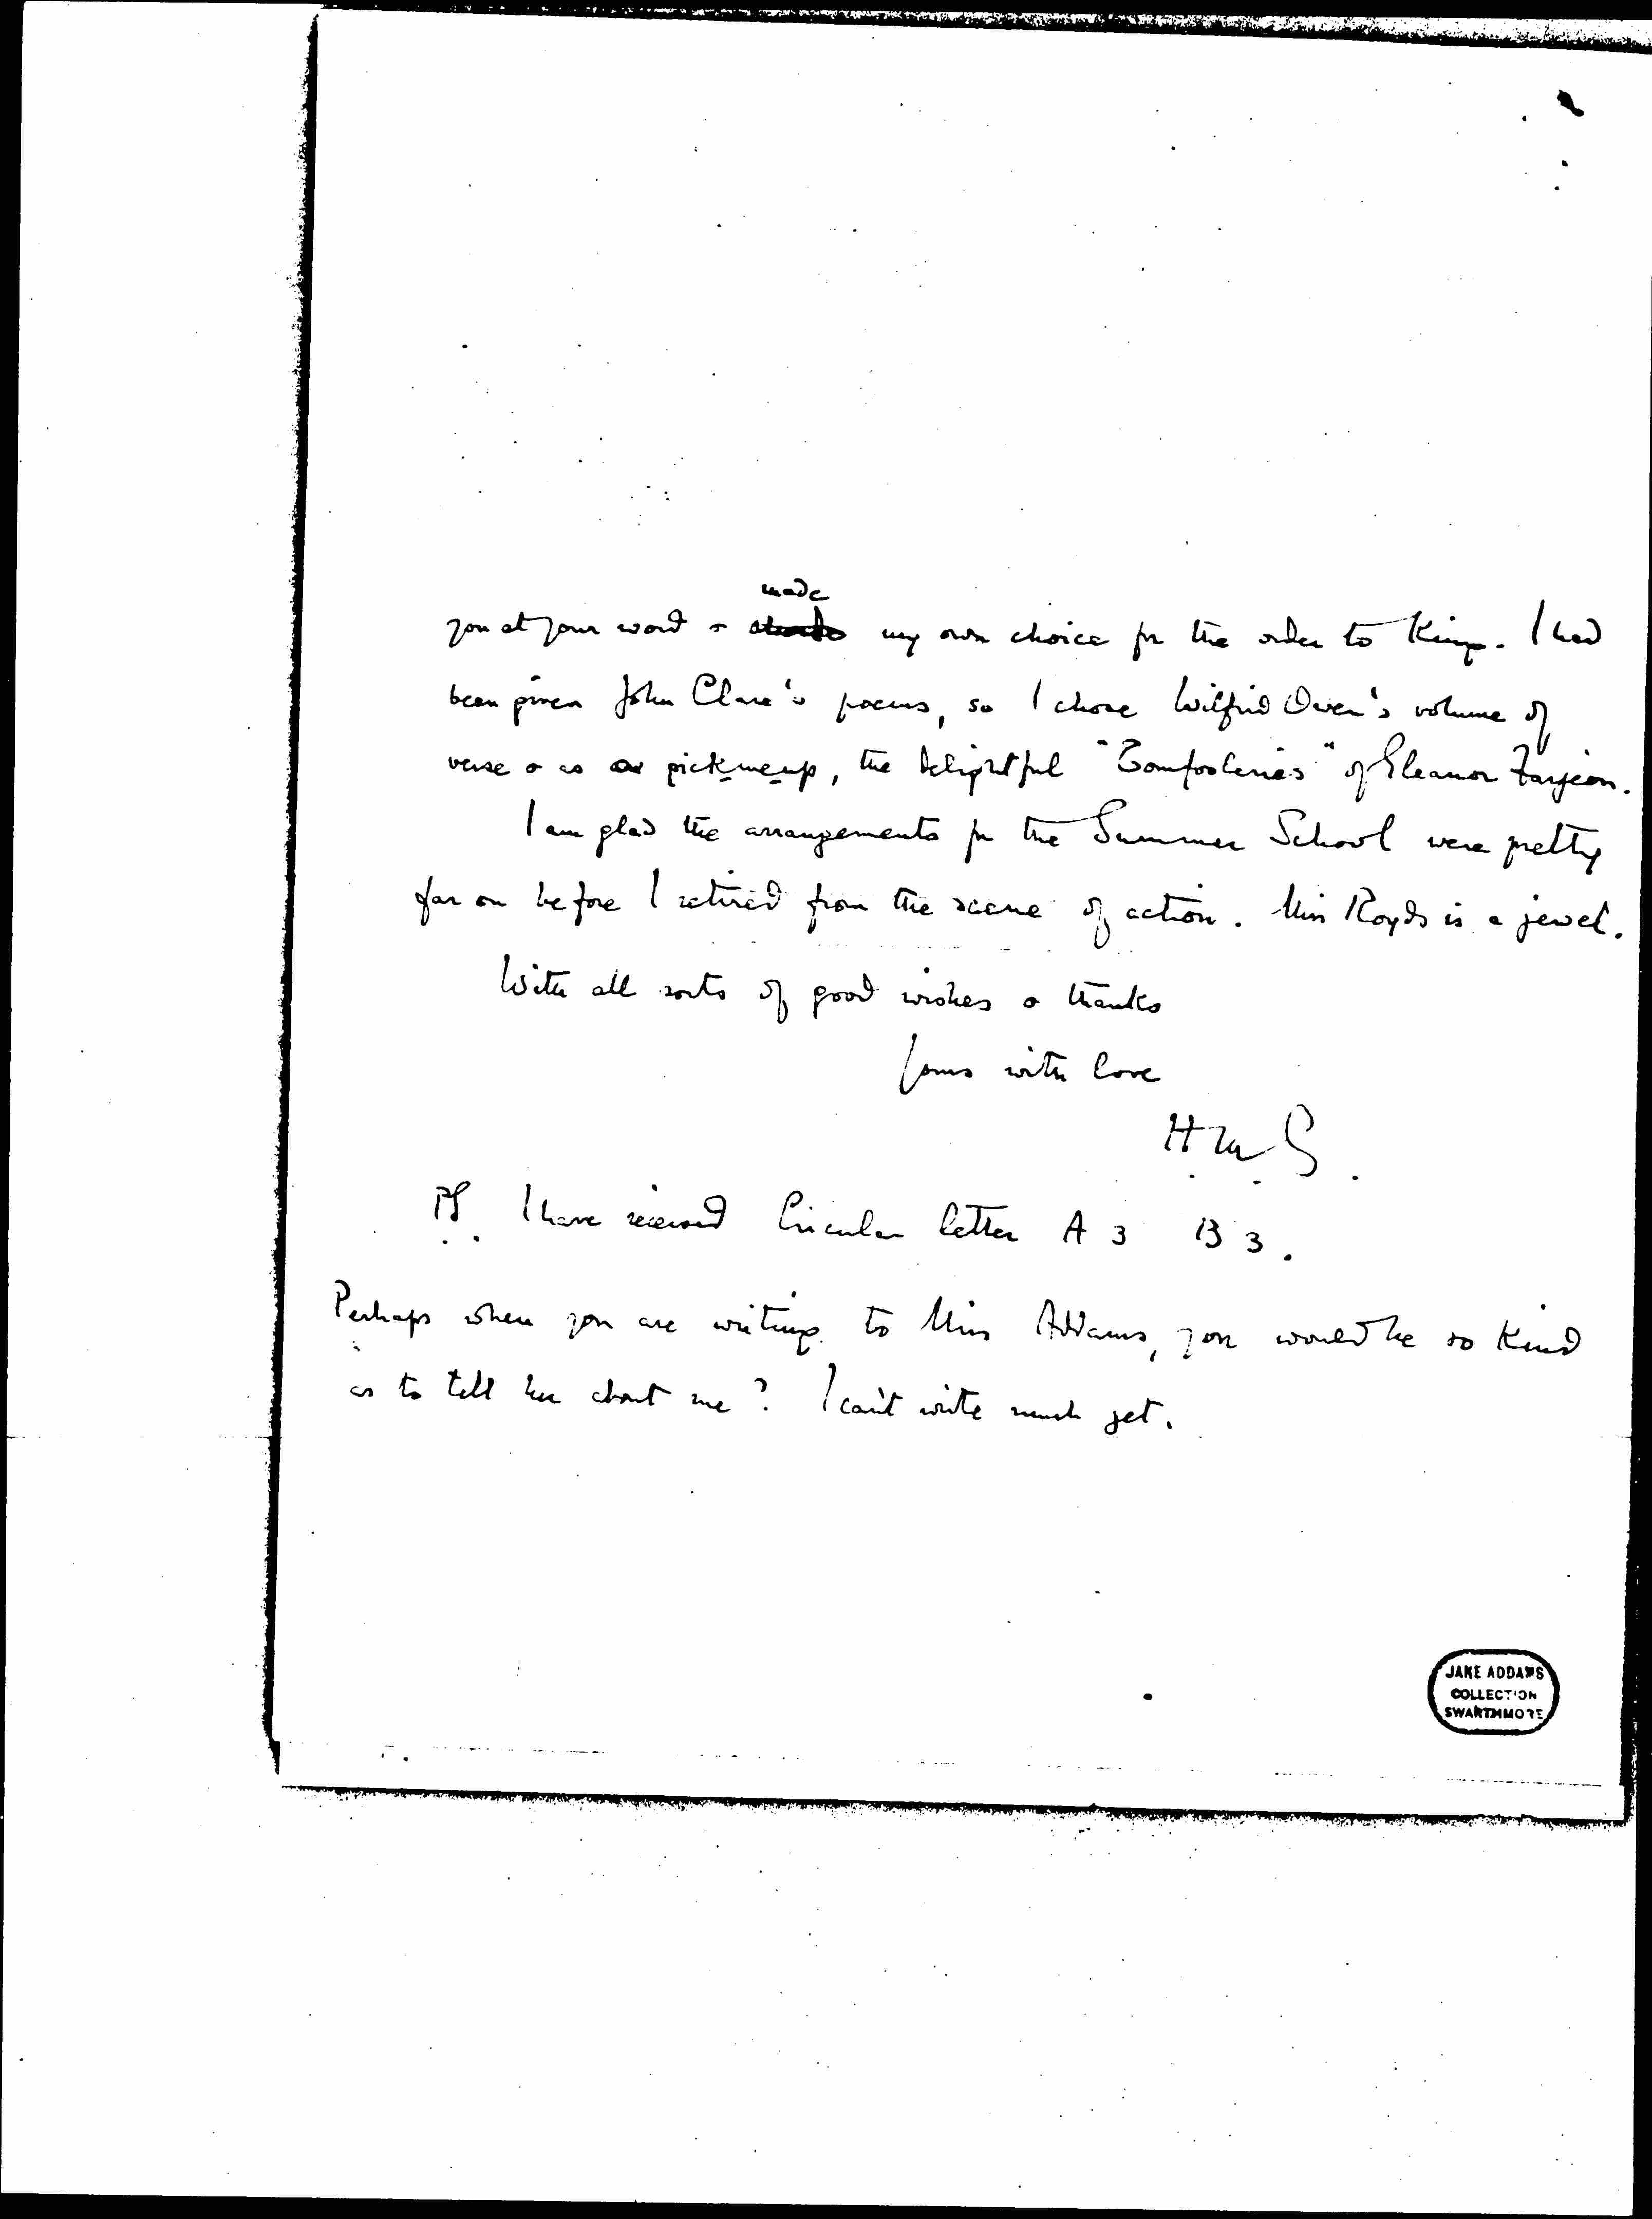 you at your word & made my own choice for the order to King. I had
been given John Clare's poems, so I chose Wilfrid Owen's volume of
verse & as a pick-me-up, the delightful "Tomfooleries" of Eleanor Farjeon.
I am glad the arrangements for the Summer School were pretty
far on before I retired from the scene of action. Miss Royds is a jewel.
With all sorts of good wishes & thanks
Yours with love
H M S.
PS. I have received Circular letter A 3 B 3.
Perhaps when you are writing to Miss Addams, you would be so kind
as to tell her about me? I can't write much yet.
JANE ADDAMS
COLLECTION
SWARTHMORE